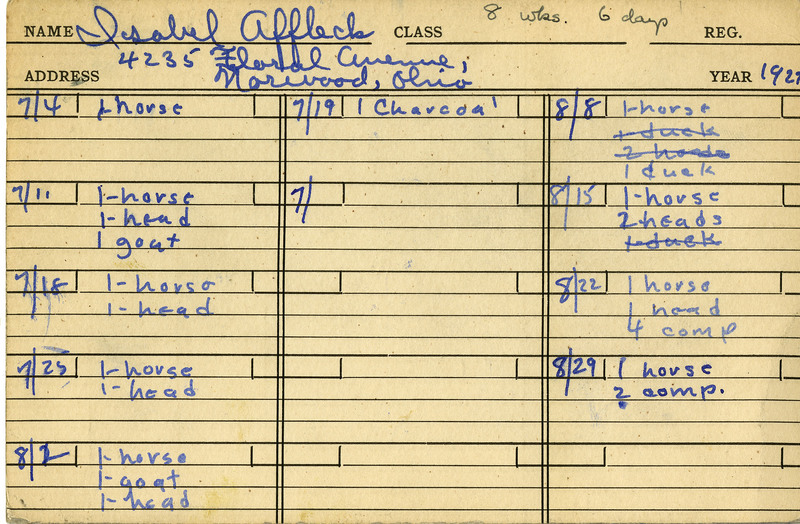 8 wks. 6 days
NAME Isabel Affleck CLASS REG.
4235 Floral Avenue,
ADDRESS Norwood, Ohio YEAR 192
7/4 1-horse
7/11 1-horse
1-head
1 goat
7/18 1-horse
1-head
7/25 1-horse
1-head
8/2 1-horse
1-goat
1-head
7/19 1 Charcoal
7/
8/8 1-horse
1-duck
2 heads
1 duck
8/15 1-horse
2 heads
1-duck
8/22 1 horse
1 head
4 comp
8/29 1 horse
2 comp.